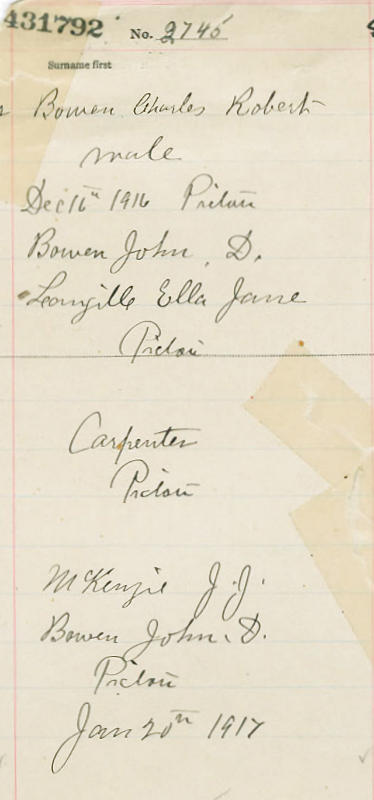 431792
No. 2745
Surname first
Bowen Charles Robert
male
Dec 16th 1916 Pictou
Bowen John. D.
Langille Ella Jane
Pictou
Carpenter
Pictou
McKenzie J. J.
Bowen John. D.
Pictou
Jan 20th 1917